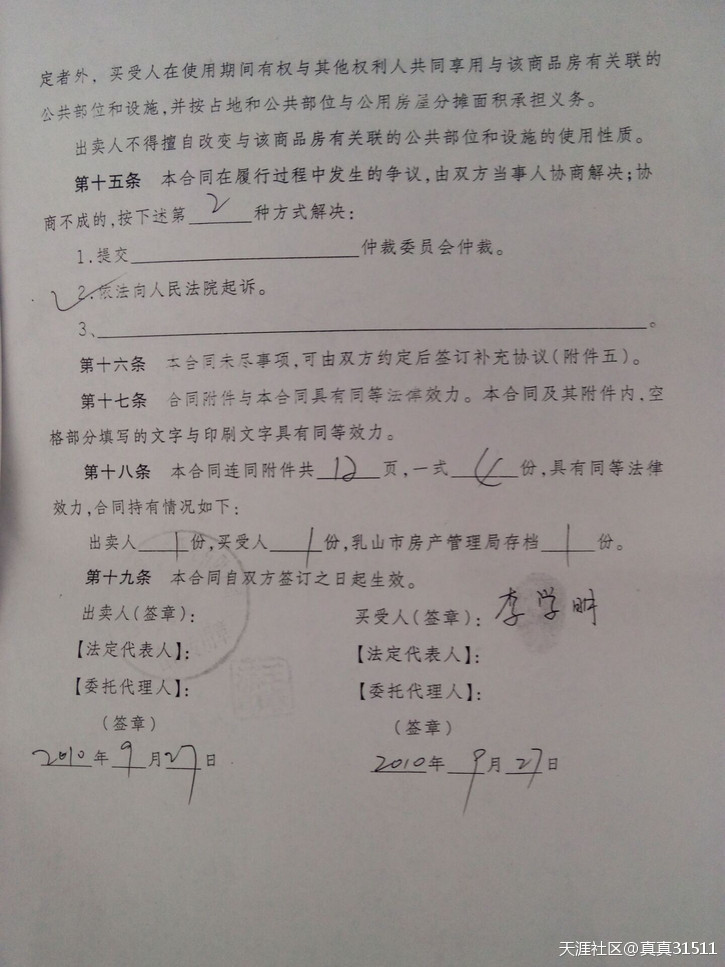 定者外，买受人在使用期间有权与其他权利人共同享用与该商品房有关联的
公共部位和设施,并按占地和公共部位与公用房屋分摊面积承担义务。
出卖人不得擅自改变与该商品房有关联的公共部位和设施的使用性质。
第十五条 本合同在履行过程中发生的争议,由双方当事人协商解决;协
商不成的,按下述第 2 种方式解决:
1.提交________仲裁委员会仲裁。
✓2.依法向人民法院起诉。
3、________。
第十六条 本合同未尽事项,可由双方约定后签订补充协议(附件五)。
第十七条 合同附件与本合同具有同等法律效力。本合同及其附件内,空
格部分填写的文字与印刷文字具有同等效力。
第十八条 本合同连同附件共 12 页,一式 份,具有同等法律
效力,合同持有情况如下:
出卖人 1 份,买受人 1 份,乳山市房产管理局存档 1 份。
第十九条 本合同自双方签订之日起生效。
出卖人(签章): 买受人(签章): 李学明
【法定代表人】: 【法定代表人】:
【委托代理人】: 【委托代理人】:
(签章) (签章)
2010年 9 月27日 2010年 9 月 27 日
天涯社区@真真31511